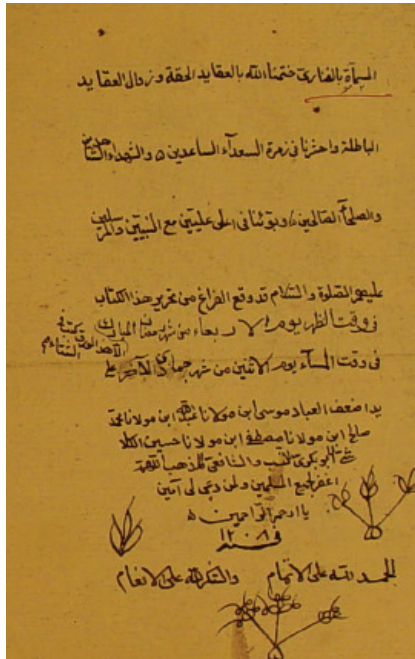 المسماة بالفنارى ختمنا الله بالعقايد الحقة وزوال العقايد
الباطلة واحشرنا فى زمرة السعدآء الساعدين والشهدآء الشاهدين
والصلحآ الصالحين وبوثنا فى اعلى عليين مع النبيين والمرسلين
عليهم الصلوة والسلام قد وقع الفراغ من تحرير هذا الكتاب
فى وقت الظهر يوم الاربعاء من شهر رمضان المبارك
فى وقت المسآء يوم الاثنين من شهر جمادى الآخر
يد اضعف العباد موسى ابن مولانا عبد الله ابن مولانا محمد
صالح ابن مولانا مصطفى ابن مولانا حسين
البوبكرى والشافعى المذهب اللهم
اغفر لجميع المسلمين ولمن دعى لى آمين
يا ارحم الراحمين
فى سنه ١٢٠٨
الحمد لله على الاتمام والشكر لله على الانعام